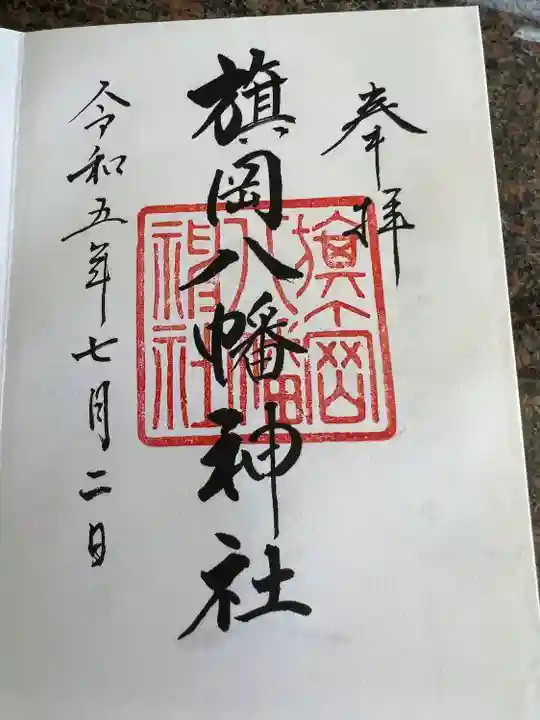 奉拝
旗岡八幡神社
旗岡
八幡
神社
令和五年七月二日